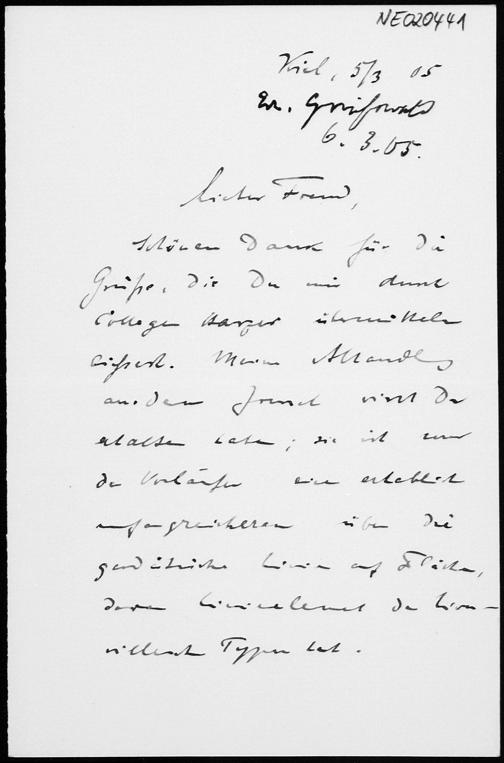 NE020441
Kiel, 5/3 05
Er. Greifswald
6.3.05.
Lieber Freund,
Schönen Dank für die
Grüße, die Du mir durch
Collegen Harzer übermitteln
ließest. Meine Abhandlg
aus dem Journal wirst Du
erhalten haben; sie ist nur
der Vorläufer einer erheblich
umfangreicheren über die
geodätische Linie auf Flächen,
deren Linienelement den Liou-
villeschen Typus hat.